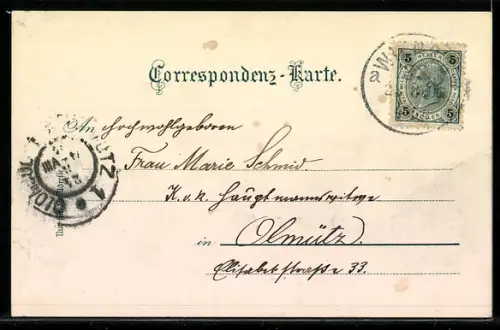 Correspondenz-Karte.
5 5
5 5
An Hochwohlgeboren
Frau Marie Schmid
K. o. k. Hauptmannswitwe
in Olmütz.
Elisabethstraße 33.
OLMÜTZ 1